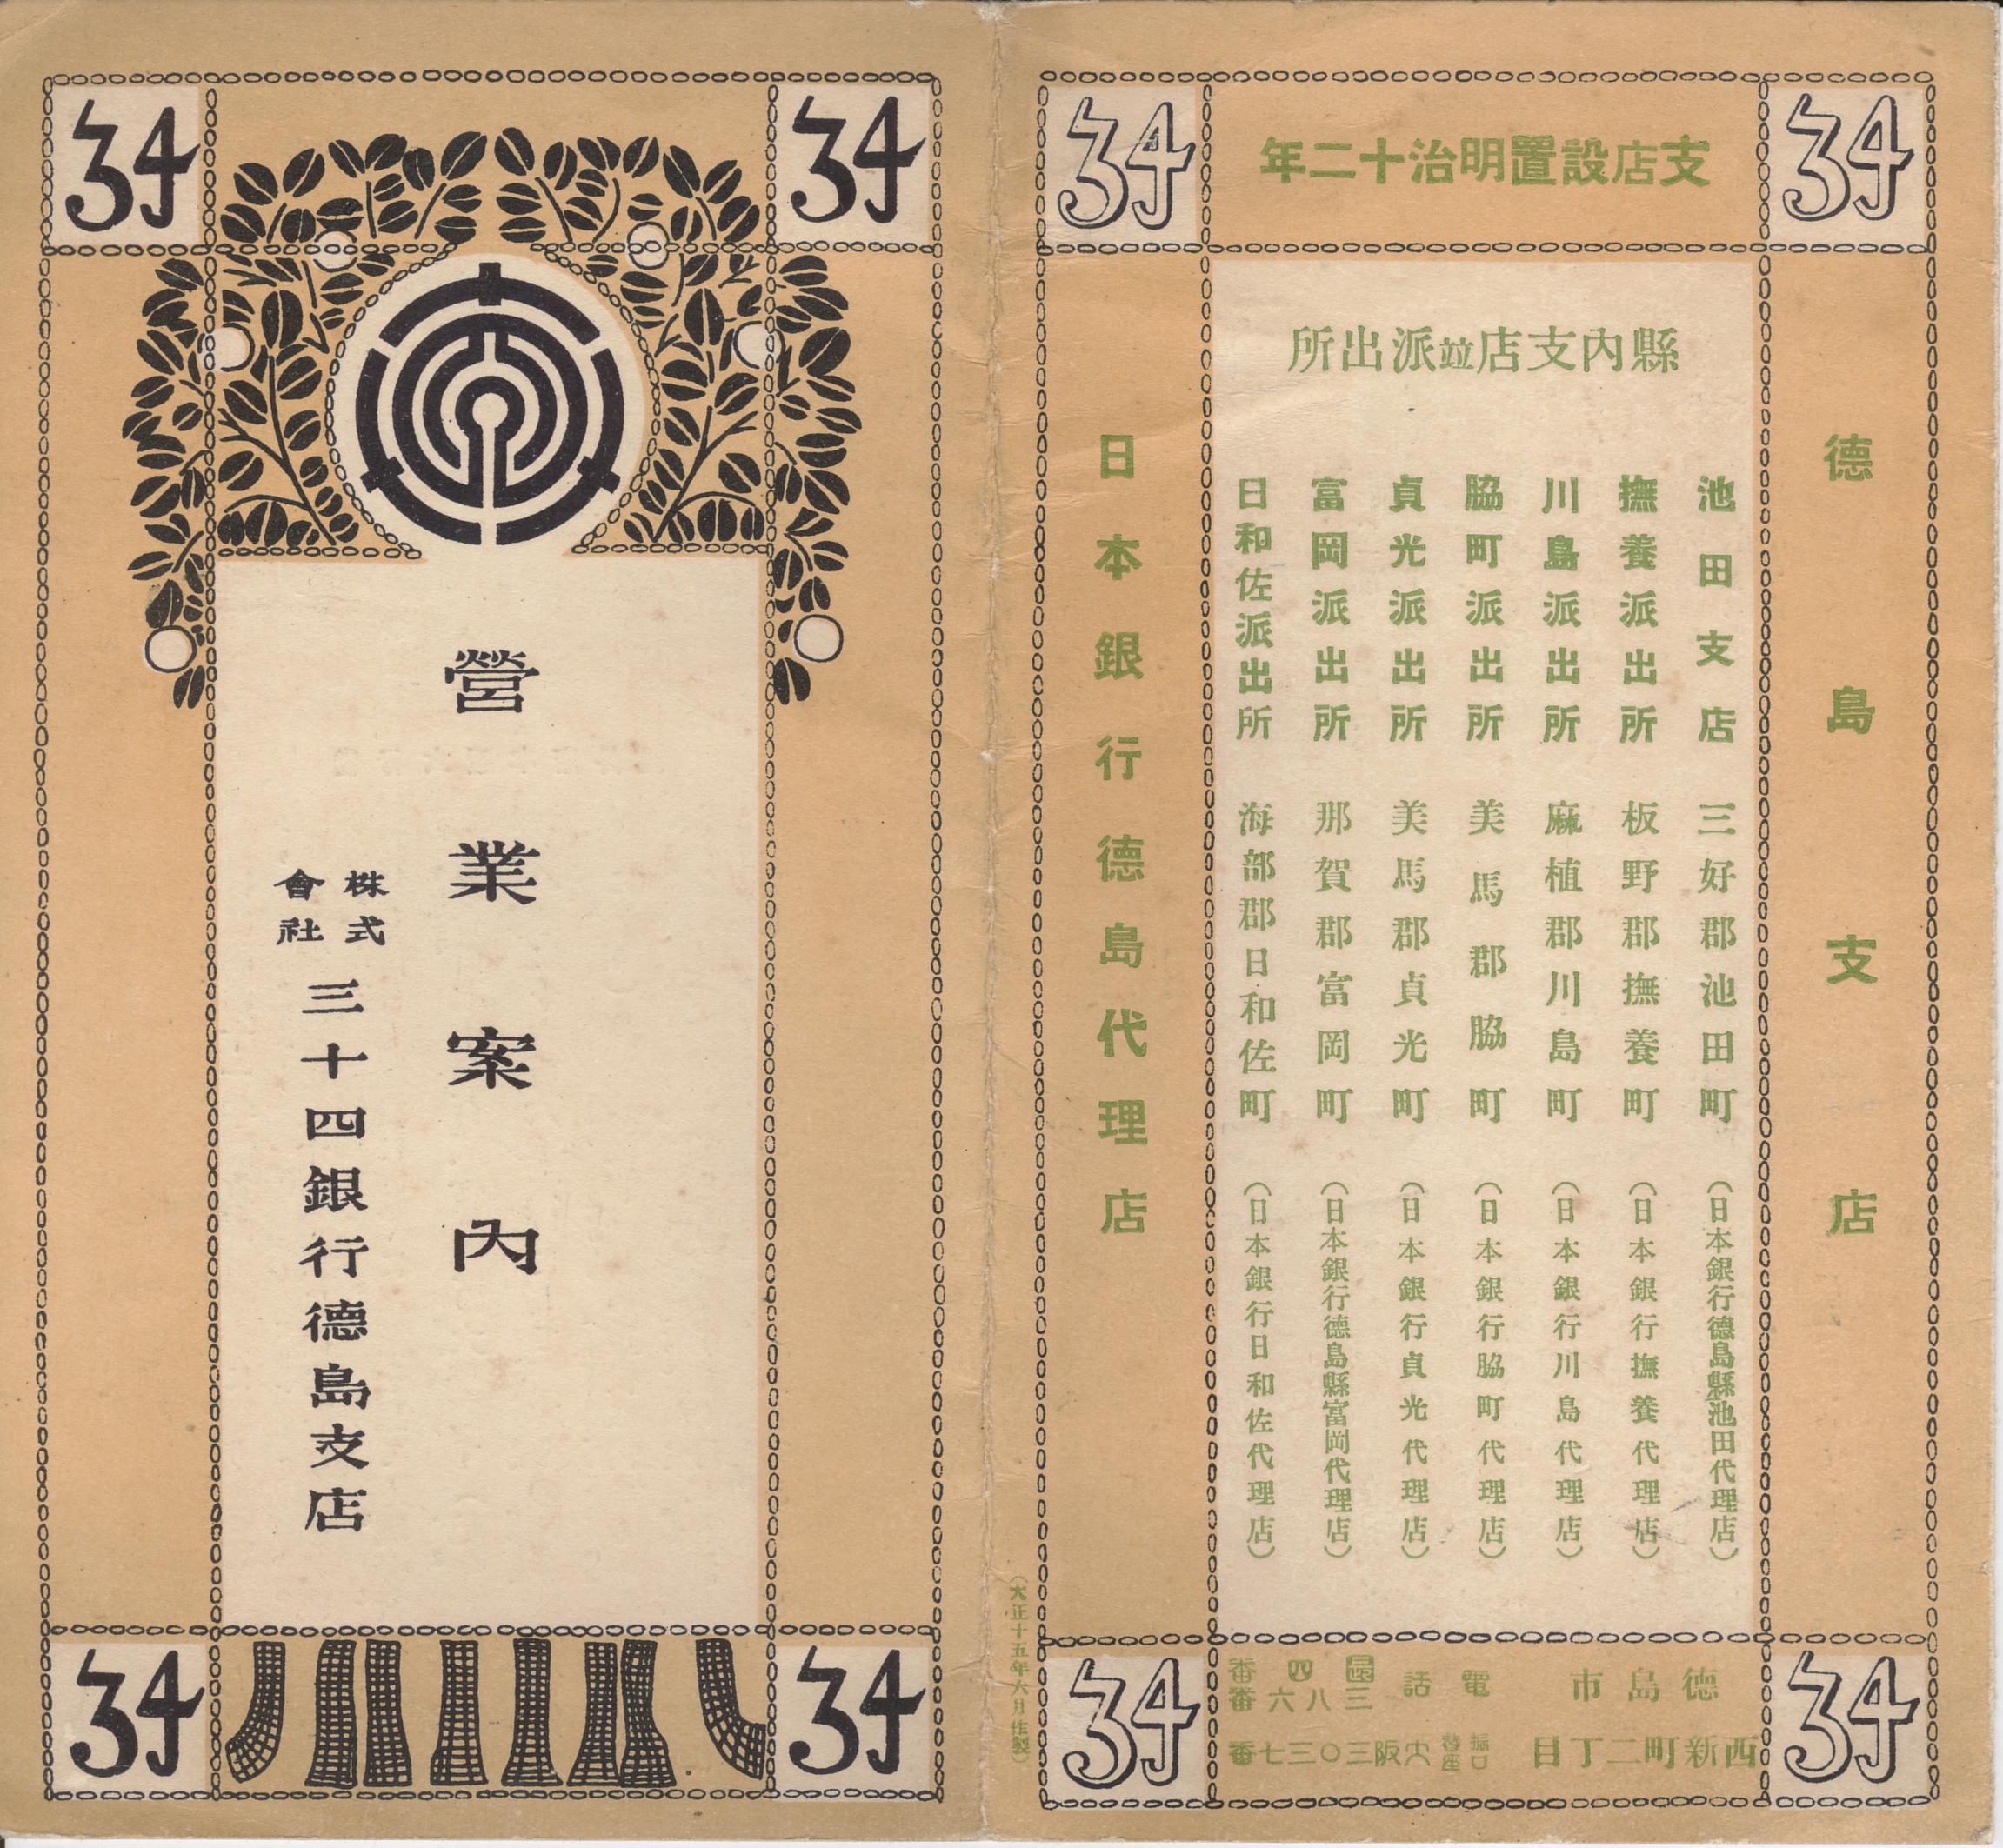 34
34
營業案內
株式會社
三十四銀行德島支店
34
34
34
支店設置明治十二年
34
德島支店
縣內支店並派出所
池田支店 三好郡池田町 (日本銀行德島縣池田代理店)
撫養派出所 板野郡撫養町 (日本銀行撫養代理店)
川島派出所 麻植郡川島町 (日本銀行川島代理店)
脇町派出所 美馬郡脇町 (日本銀行脇町代理店)
貞光派出所 美馬郡貞光町 (日本銀行貞光代理店)
富岡派出所 那賀郡富岡町 (日本銀行德島縣富岡代理店)
日和佐派出所 海部郡日和佐町 (日本銀行日和佐代理店)
日本銀行德島代理店
34
德島市
西新町二丁目
電話
長四番
三八六番
振替口座大阪三〇三七番
34
(大正十五年六月作製)